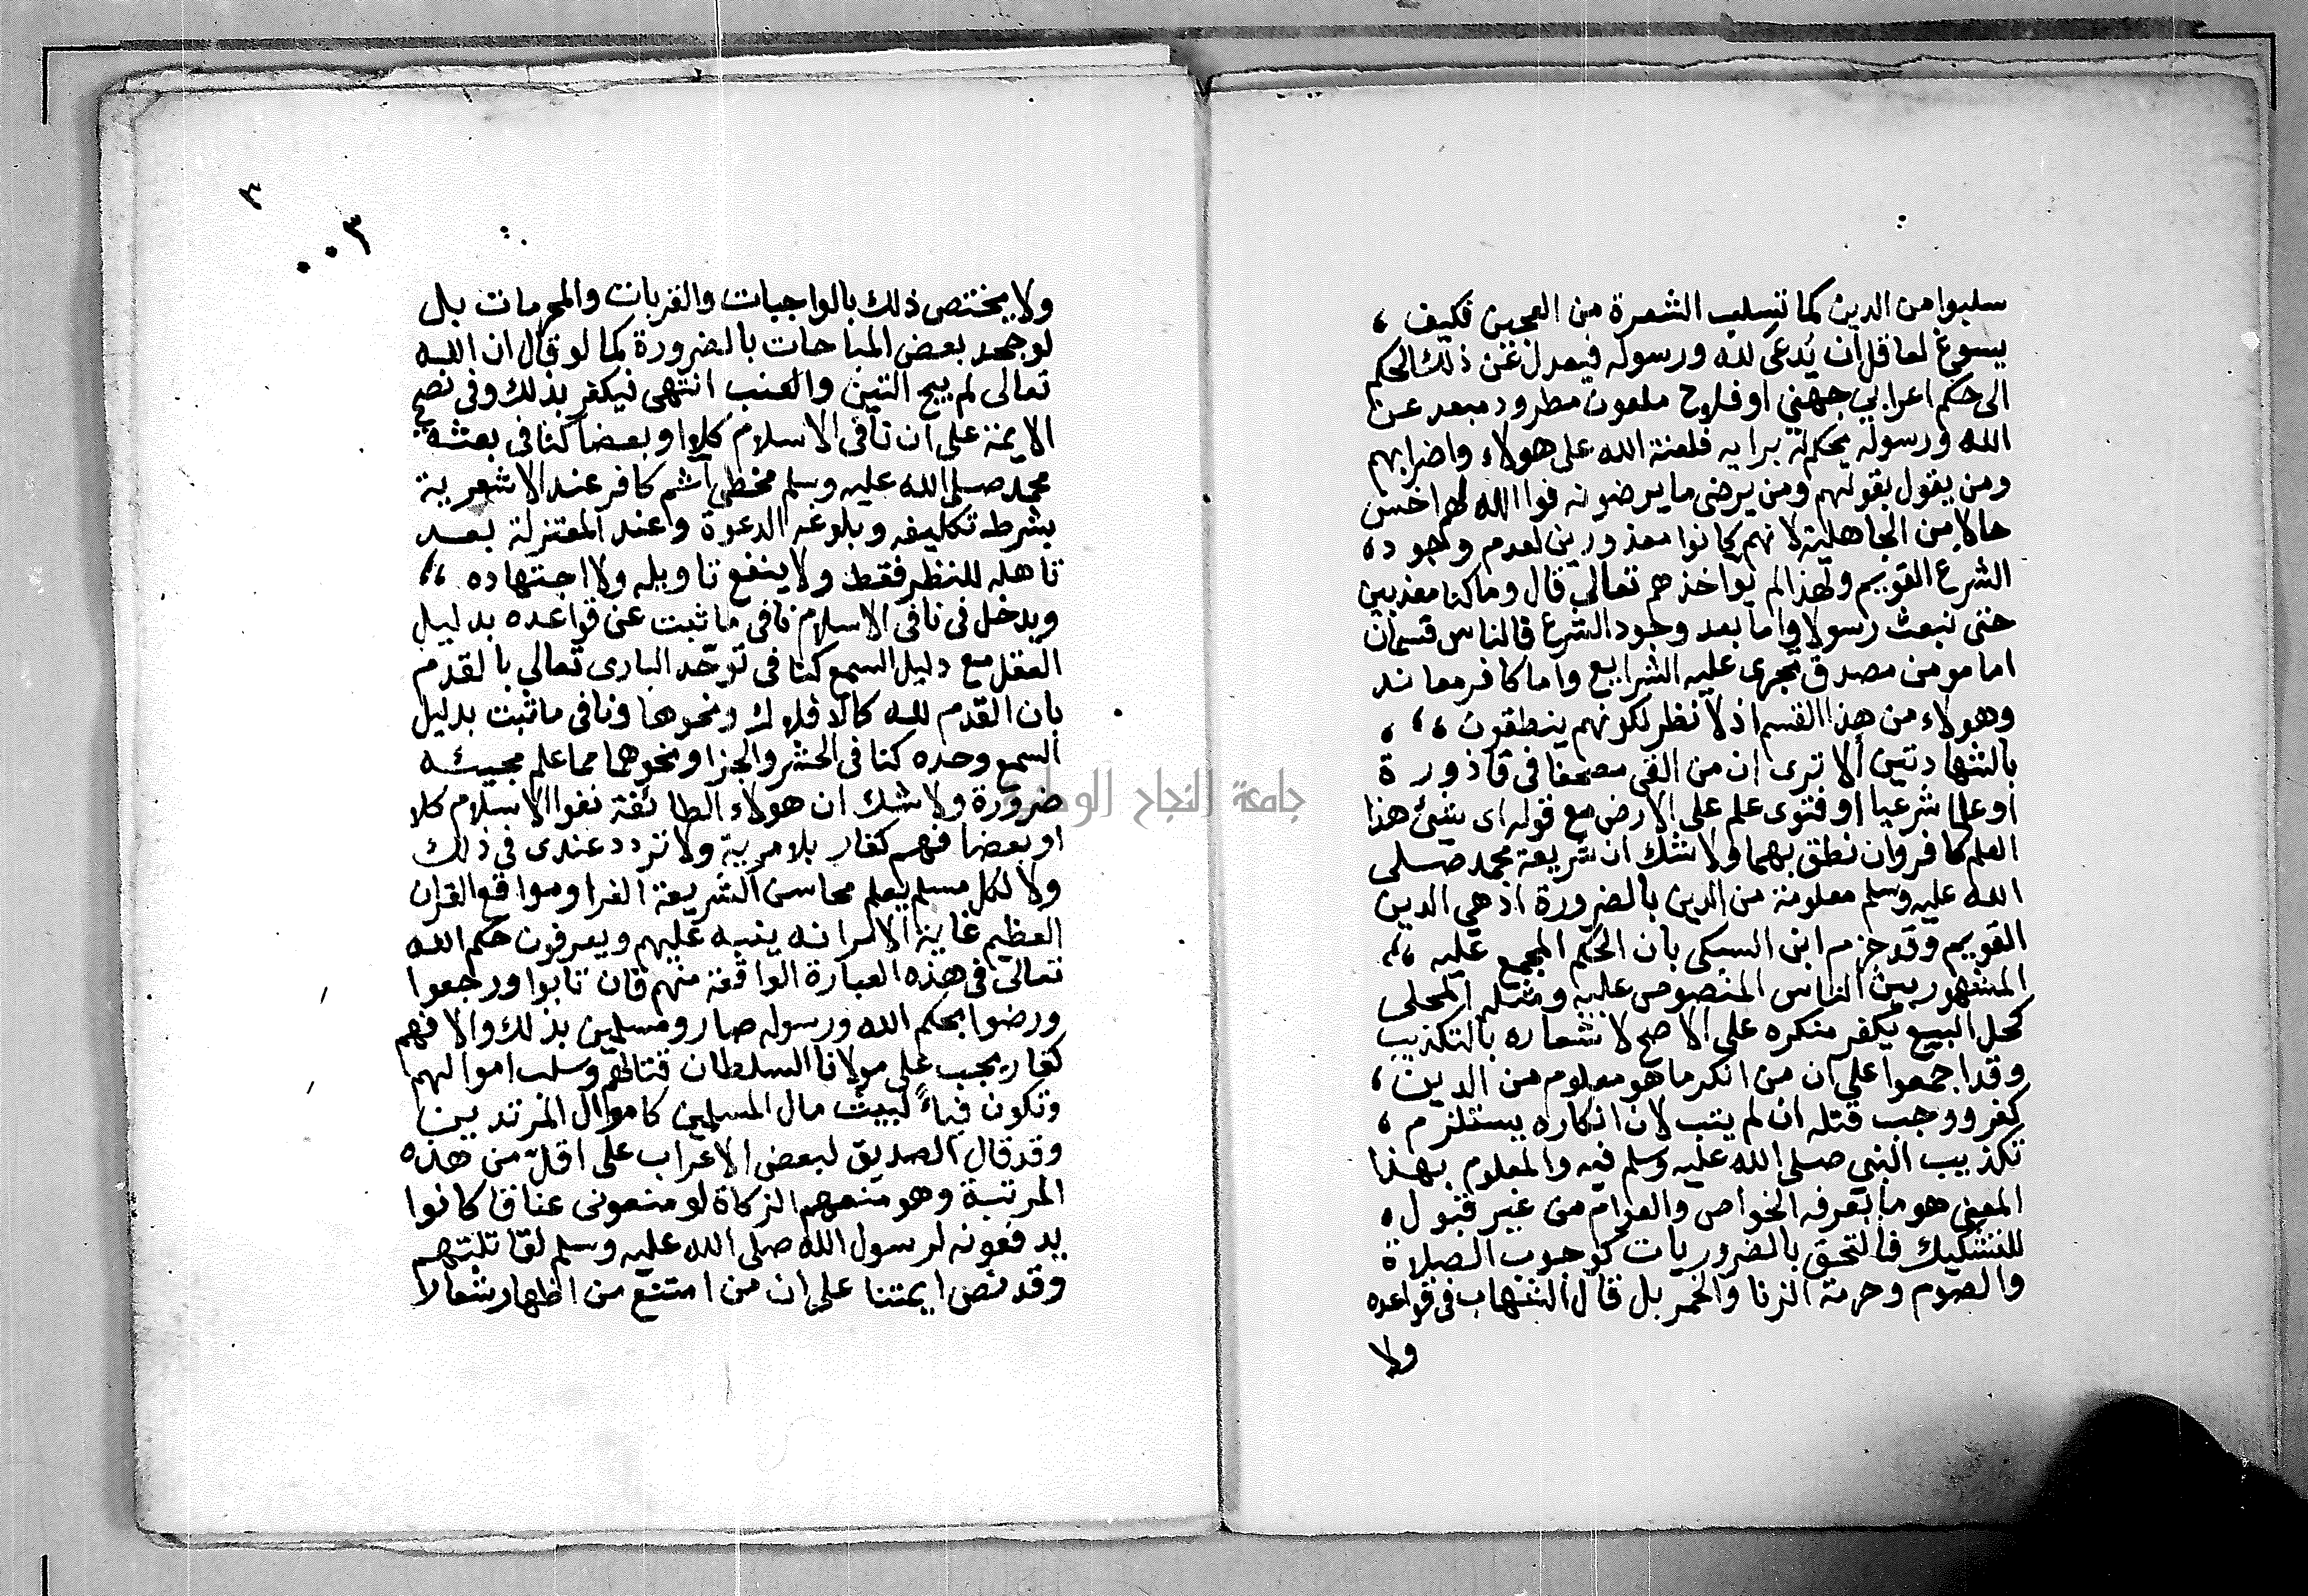 سلبوا من الدين كما تسلب الشعرة من العجين فكيف ،
يسوغ لعاقل ان يُدعى لله ورسوله فيعدل عن ذلك الحكم
الى حكم اعرابي جهني او فلاح ملعون مطرود مبعد عن
الله ورسوله يحكم له برايه فلعنة الله على هولاء واضرابهم
ومن يقول بقولهم ومن يرضى ما يرضونه فوا الله لهم اخس
حالا من الجاهلية لانهم كانوا معذورين لعدم وجود ه
الشرع القويم ولهذا لم يواخذهم تعالى قال وما كنا معذبين
حتى نبعث رسولا واما بعد وجود الشرع فالناس قسمان
اما مومن مصدق تجرى عليه الشرايع واما كافر معاند
وهولاء من هذا القسم اذ لا نظر لكونهم ينطقون ، ، ،
بالشهادتين ألا ترى ان من القى مصحفا في قاذورة
او علما شرعيا او فتوى علم على الارض مع قوله اى شيئ هذا
العلم كافر وان نطق بهما ولا شك ان شريعة محمد صلى
الله عليه وسلم معلومة من الدين بالضرورة اذ هي الدين
القويم وقد جزم ابن السبكى بان الحكم المجمع عليه ، ،
المشهور بين الناس المنصوص عليه ومثله المحلى
كحل البيع يكفر منكره على الاصح لاشعاره بالتكذيب
وقد اجمعوا على ان من انكر ما هو معلوم من الدين ،
كفر ووجب قتله ان لم يتب لان انكاره يستلزم ،
تكذيب النبي صلى الله عليه وسلم فيه والمعلوم بهذا
المعنى هو ما يعرفه الخواص والعوام من غير قبول ،
للتشكيك فالتحق بالضروريات كوجوب الصلاة
والصوم وحرمة الزنا والخمر بل قال الشهاب في قواعده
ولا
٣
٠٠٣
ولا يختص ذلك بالواجبات والقربات والمحرمات بل
لو جحد بعض المباحات بالضرورة كما لو قال ان الله
تعالى لم يبح التين والعنب انتهى فيكفر بذلك وفي نص
الايمة على ان نافى الاسلام كلا او بعضا كنافى بعثة
محمد صلى الله عليه وسلم مخطئ آثم كافر عند الاشعرية
بشرط تكليفه وبلوغه الدعوة وعند المعتزلة بعد
تاهله للنظر فقط ولا ينفع تاويله ولا اجتهاده ،،
ويدخل في نافى الاسلام نافى ما ثبت عن قواعده بدليل
العقل مع دليل السمع كنافى توحّد البارى تعالى بالقدم
بان القدم لله كالافلاك ونحوها ونافى ما ثبت بدليل
السمع وحده كنافى الحشر والجزا ونحوهما مما علم مجيئه
ضرورة ولا شك ان هولاء الطائفة نفوا الاسلام كلا
او بعضا فهم كفار بلا مرية ولا تردد عندى في ذلك
ولا لكل مسلم يعلم محاسن الشريعة الغرا ومواقع القران
العظيم غاية الامر انه ينبه عليهم ويعرفون حكم الله
تعالى في هذه العبارة الواقعة منهم فان تابوا ورجعوا
ورضوا بحكم الله ورسوله صاروا مسلمين بذلك والا فهم
كفار يجب على مولانا السلطان قتالهم وسلب اموالهم
وتكون فيأً لبيت مال المسلمين كاموال المرتدين
وقد قال الصديق لبعض الاعراب على اقل من هذه
المرتبة وهو منعهم الزكاة لو منعونى عناقا كانوا
يدفعونه لرسول الله صلى الله عليه وسلم لقاتلتهم
وقد نص ايمتنا على ان من امتنع من اظهار شعا لا
جامعة النجاح الوطنية